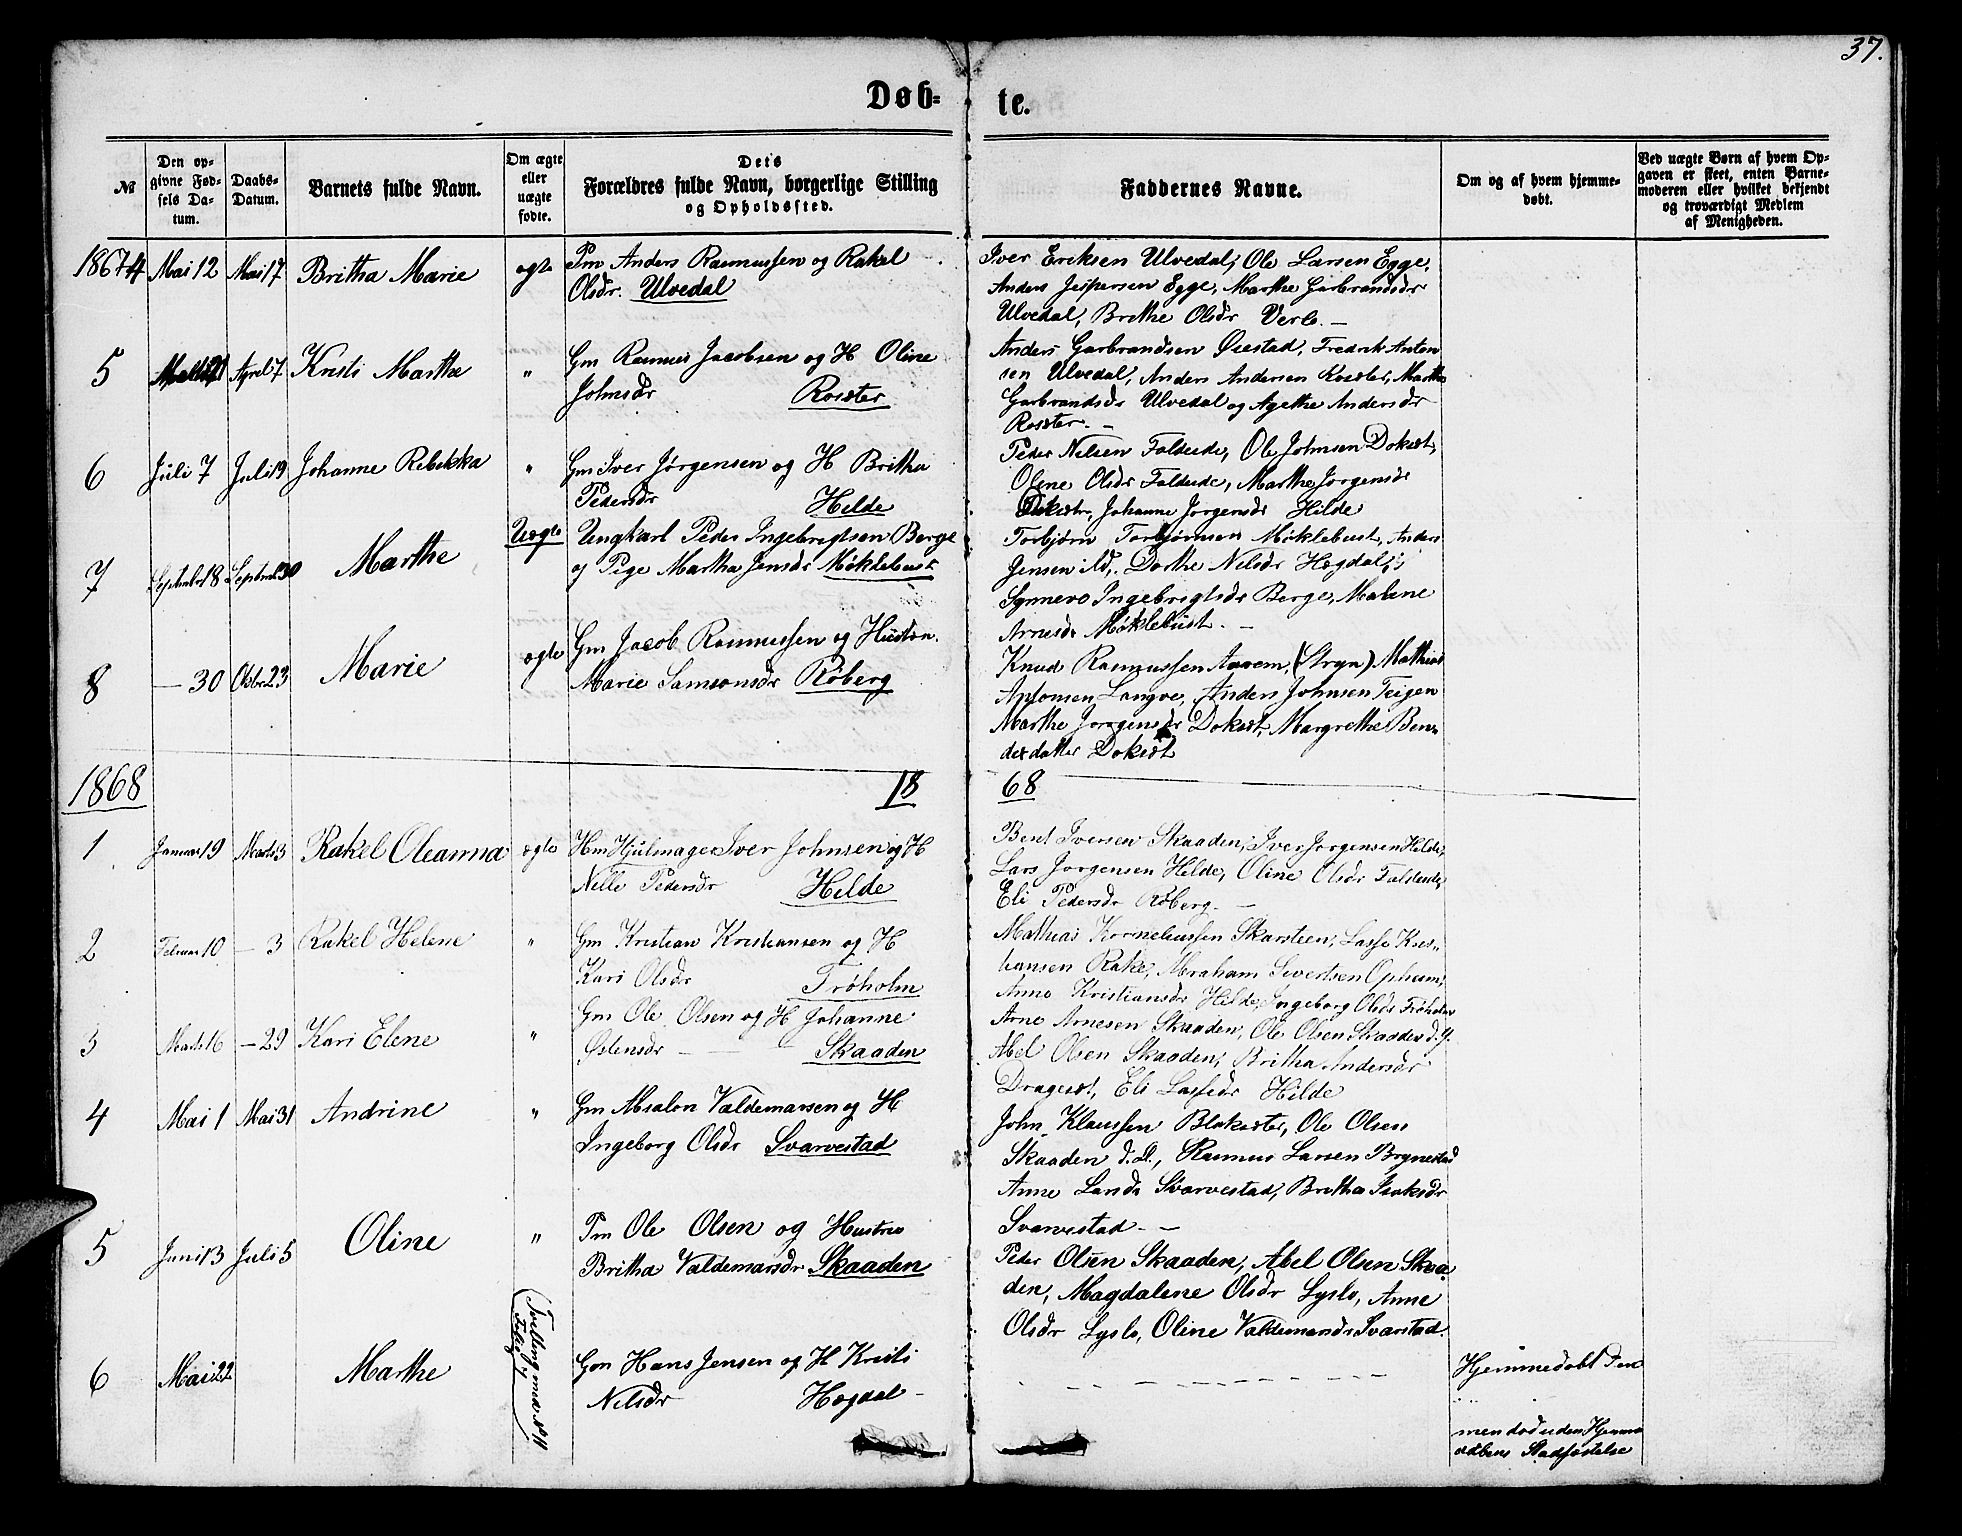 37.
Døb-
te.
№
Den op-
givne Fød-
sels Da-
tum.
Daabs-
Datum.
Barnets fulde Navn.
Om ægte
eller
uægte
fødte.
Dets
Forældres fulde Navn, borgerlige Stilling
og Opholdssted.
Faddernes Navne.
Om og af hvem hjemme-
døbt.
Ved uægte Børn af hvem Op-
gaven er skeet, enten Barne-
moderen eller hvilket bekjendt
og troværdigt Medlem
af Menigheden.
1867 4 Mai 12 Mai 17 Britha Marie ægte Pm Anders Rasmussen og Rakel
Olsdr. Ulvedal
Iver Eriksen Ulvedal, Ole Larsen Egge,
Anders Jespersen Egge, Marthe Garbrandsdr
Ulvedal, Brithe Olsdr Verlo. —
5 April 7 Kristi Marthe " Gm Rasmus Jacobsen og H Oline
Johnsdr Rosæter
Anders Garbrandsen Øiestad, Fredrik Anton
sen Ulvedal, Anders Andersen Rosæter, Marthe
Garbrandsdr Ulvedal og Agethe Andersdr
Rosæter. —
6 Juli 7 Juli 19 Johanne Rebekka " Gm Iver Jørgensen og H Britha
Pedersdr Hilde
Peder Nilsen Faldeide, Ole Johnsen Dokset,
Oline Olsdr Faldeide, Marthe Jørgensdr
Dokset, Johanne Jørgensdr Hilde
7 September 18 September 30 Marthe Uægte Ungkarl Peder Ingebrigtsen Berge
og Pige Martha Jensdr Møklebust
Torbjørn Torbjørnsen Møklebust, Anders
Jensen ild, Dorthe Nilsdr Høgdal,
Synnevo Ingebrigtsdr Berge, Malene
Arnesdr Møklebust. —
8 — 30 Oktbr 23 Marie ægte Gm Jacob Rasmussen og Hustru
Marie Samsonsdr Røberg
Knud Rasmussen Aarem, (Stryn) Mathias
Apolonsen Langve, Anders Johnsen Teigen
Marthe Jørgensdr Dokset, Margrethe Ben-
detdatter Dokset
1868 18 68
1 Januar 19 Marts 3 Rakel Oleanna ægte Hm Hjulmager Iver Johnsen og H
Nille Pedersdr Hilde
Bent Iversen Skaaden, Iver Jørgensen Hilde,
Lars Jørgensen Hilde, Oline Olsdr Faldeide,
Eli Pedersdr Røberg. —
2 Februar 10 — 3 Rakel Helene " Gm Kristian Kristiansen og H
Kari Olsdr Frøholm
Mathias Korneliussen Skarsteen, Lasse Kris-
tiansen Rake, Abraham Sivertsen Opheim,
Anne Kristiansdr Hilde, Ingeborg Olsdr Frøholm
3 Marts 16 — 29 Kari Elene " Gm Ole Olsen og H Johanne
Østensdr — Skaaden
Arne Arnesen Skaaden, Ole Olsen Skaaden d. y.
Abel Olsen Skaaden, Britha Andersdr
Drageset, Eli Lassedr Hilde
4 Mai 1 Mai 31 Andrine " Gm Absalon Valdemarsen og H
Ingeborg Olsdr Svarvestad
John Klaussen Blakseter, Ole Olsen
Skaaden d. Æ., Rasmus Larsen Brynestad
Anne Larsdr Svarvestad, Britha Isaksdr
Svarvestad. —
5 Juni 13 Juli 5 Oline " Pm Ole Olsen og Hustru
Britha Valdemarsdr Skaaden
Peder Olsen Skaaden, Abel Olsen Skaa-
den, Magdalene Olsdr Lyslo, Anne
Olsdr Lyslo, Oline Valdemarsdr Svarstad.
6 Mai 22 Marthe Gm Hans Jensen og H Kristi
Nilsdr Høgdal —
Tvilling med N 11
Hjemmedøbt
men død uden Hjemme
daabens Stadfæstelse